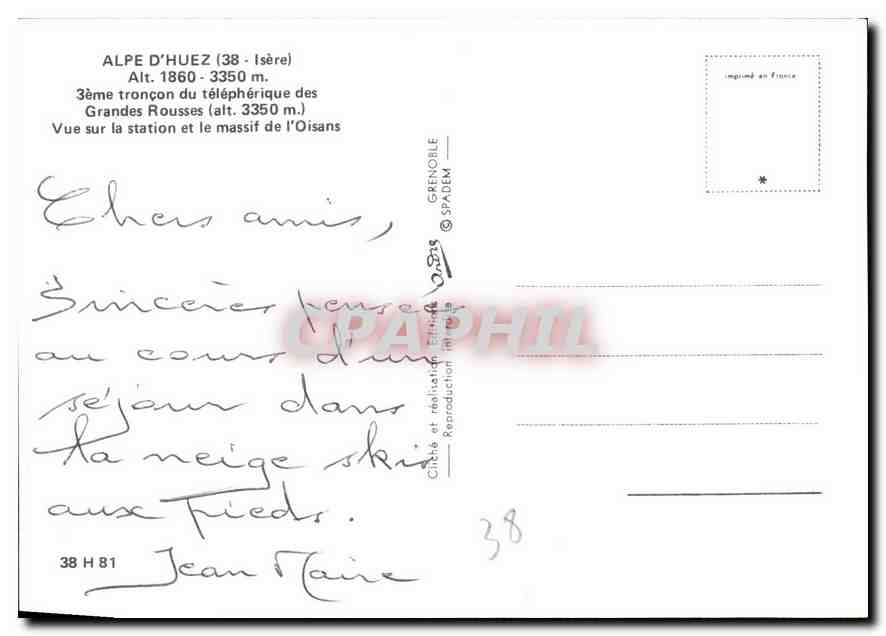 ALPE D'HUEZ (38 - Isère)
Alt. 1860 - 3350 m.
3ème tronçon du téléphérique des
Grandes Rousses (alt. 3350 m.)
Vue sur la station et le massif de l'Oisans
imprimé en France
*
Chers amis,
Sincères pensées
au cours d'un
séjour dans
la neige skis
aux pieds.
Jean Marie
38 H 81
Cliché et réalisation Editions André GRENOBLE
Reproduction interdite © SPADEM
CPAPHIL
38